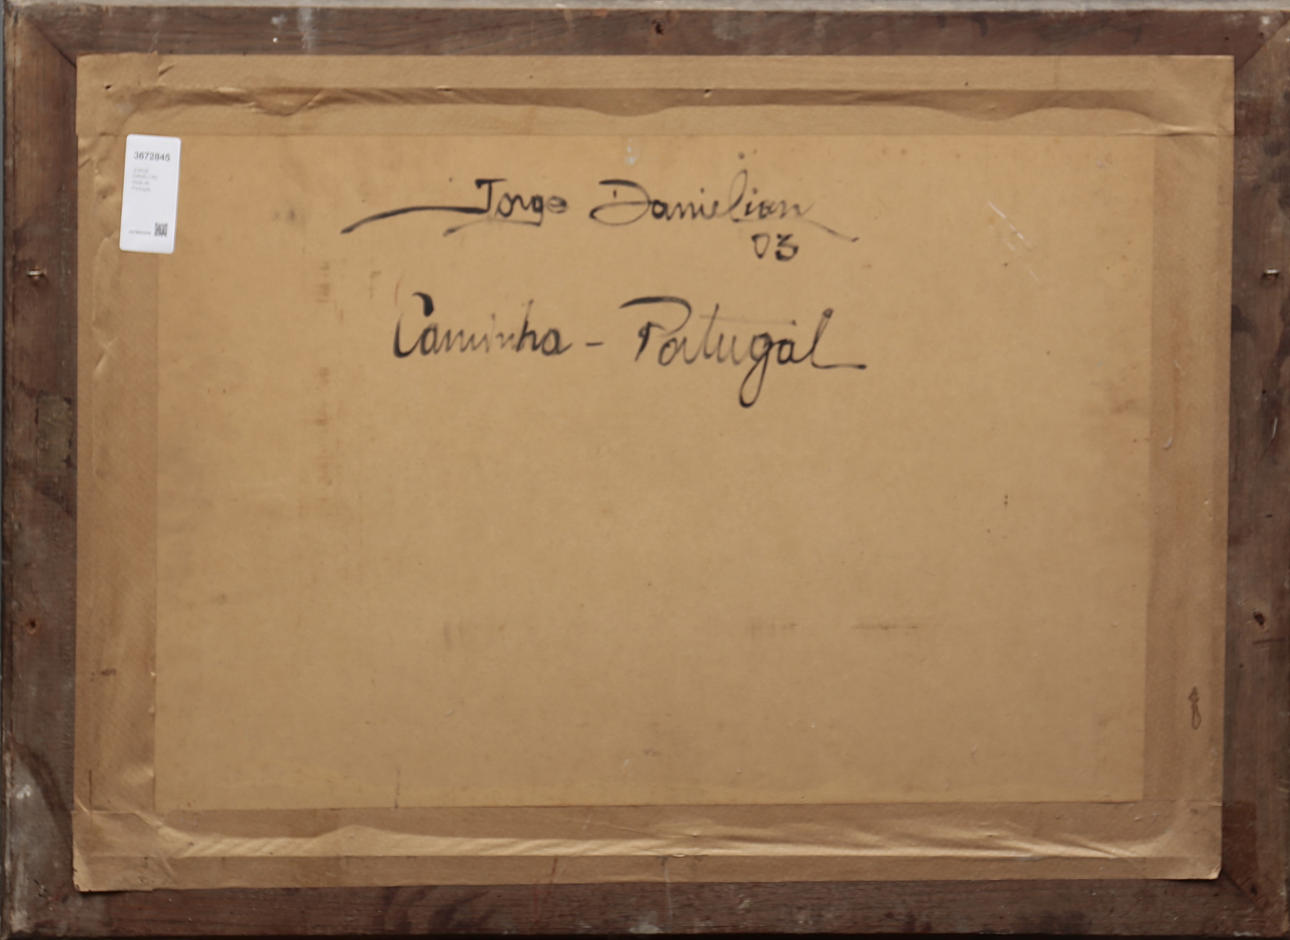 3672845
Jorge Danielian
03
Caminha - Portugal